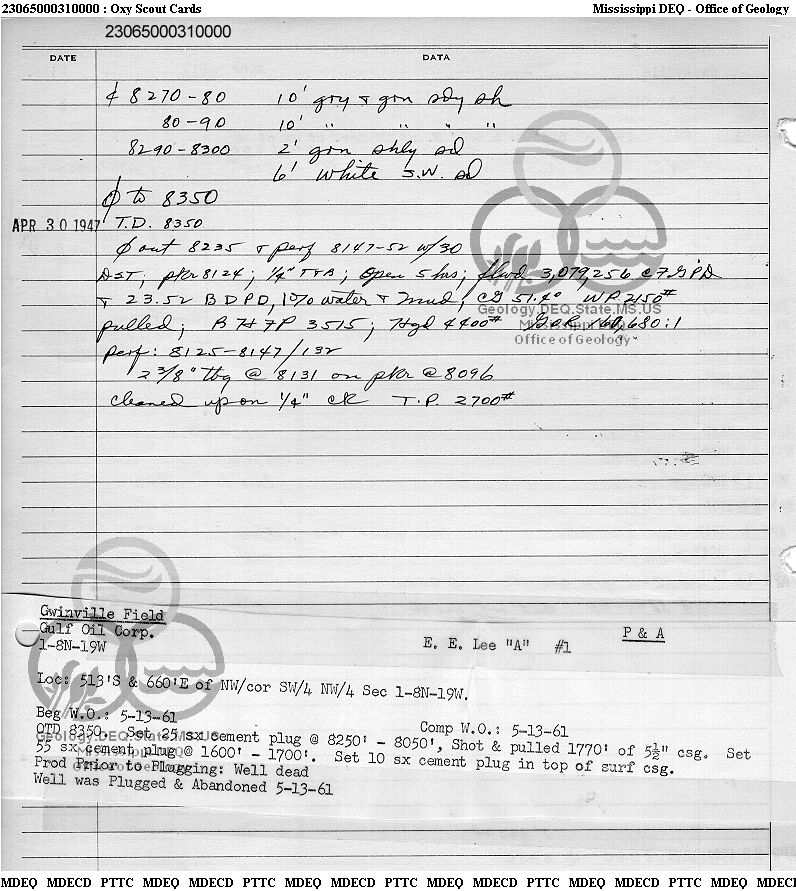 23065000310000 : Oxy Scout Cards Mississippi DEQ - Office of Geology
23065000310000
DATE DATA
¢ 8270-80 10' gry & grn sdy sh
80-90 10' " " " "
8290-8300 2' grn shly sd
6' white S.W. sd
∅ to 8350
APR 30 1947 T.D. 8350
∅ out 8235 & perf 8147-52 w/30
DST; pkr 8124; 1/4" T&B; open 5 hrs; flwd 3,079,256 CFGPD
& 23.52 BDPD, 1% water & mud; CG 51.4° WP. 2150#
pulled; BHFP 3515; Hyd 4400# G.O.R.
perf: 8125-8147/132
2 3/8" tbg @ 8131 on pkr @ 8096
cleaned up on 1/4" ck T.P. 2700#
Office of Geology
Geology.DEQ.State.MS.US
Mississippi DEQ
Office of Geology
Gwinville Field
Gulf Oil Corp. E. E. Lee "A" #1 P & A
1-8N-19W
Loc: 513'S & 660'E of NW/cor SW/4 NW/4 Sec 1-8N-19W.
Beg W.O.: 5-13-61 Comp W.O.: 5-13-61
OTD 8350. Set 25 sx cement plug @ 8250' - 8050', Shot & pulled 1770' of 5½" csg. Set
55 sx cement plug @ 1600' - 1700'. Set 10 sx cement plug in top of surf csg.
Prod Prior to Plugging: Well dead
Well was Plugged & Abandoned 5-13-61
Geology.DEQ.State.MS.US
Mississippi DEQ
Office of Geology
MDEQ MDECD PTTC MDEQ MDECD PTTC MDEQ MDECD PTTC MDEQ MDECD PTTC MDEQ MDECD PTTC MDEQ MDECD